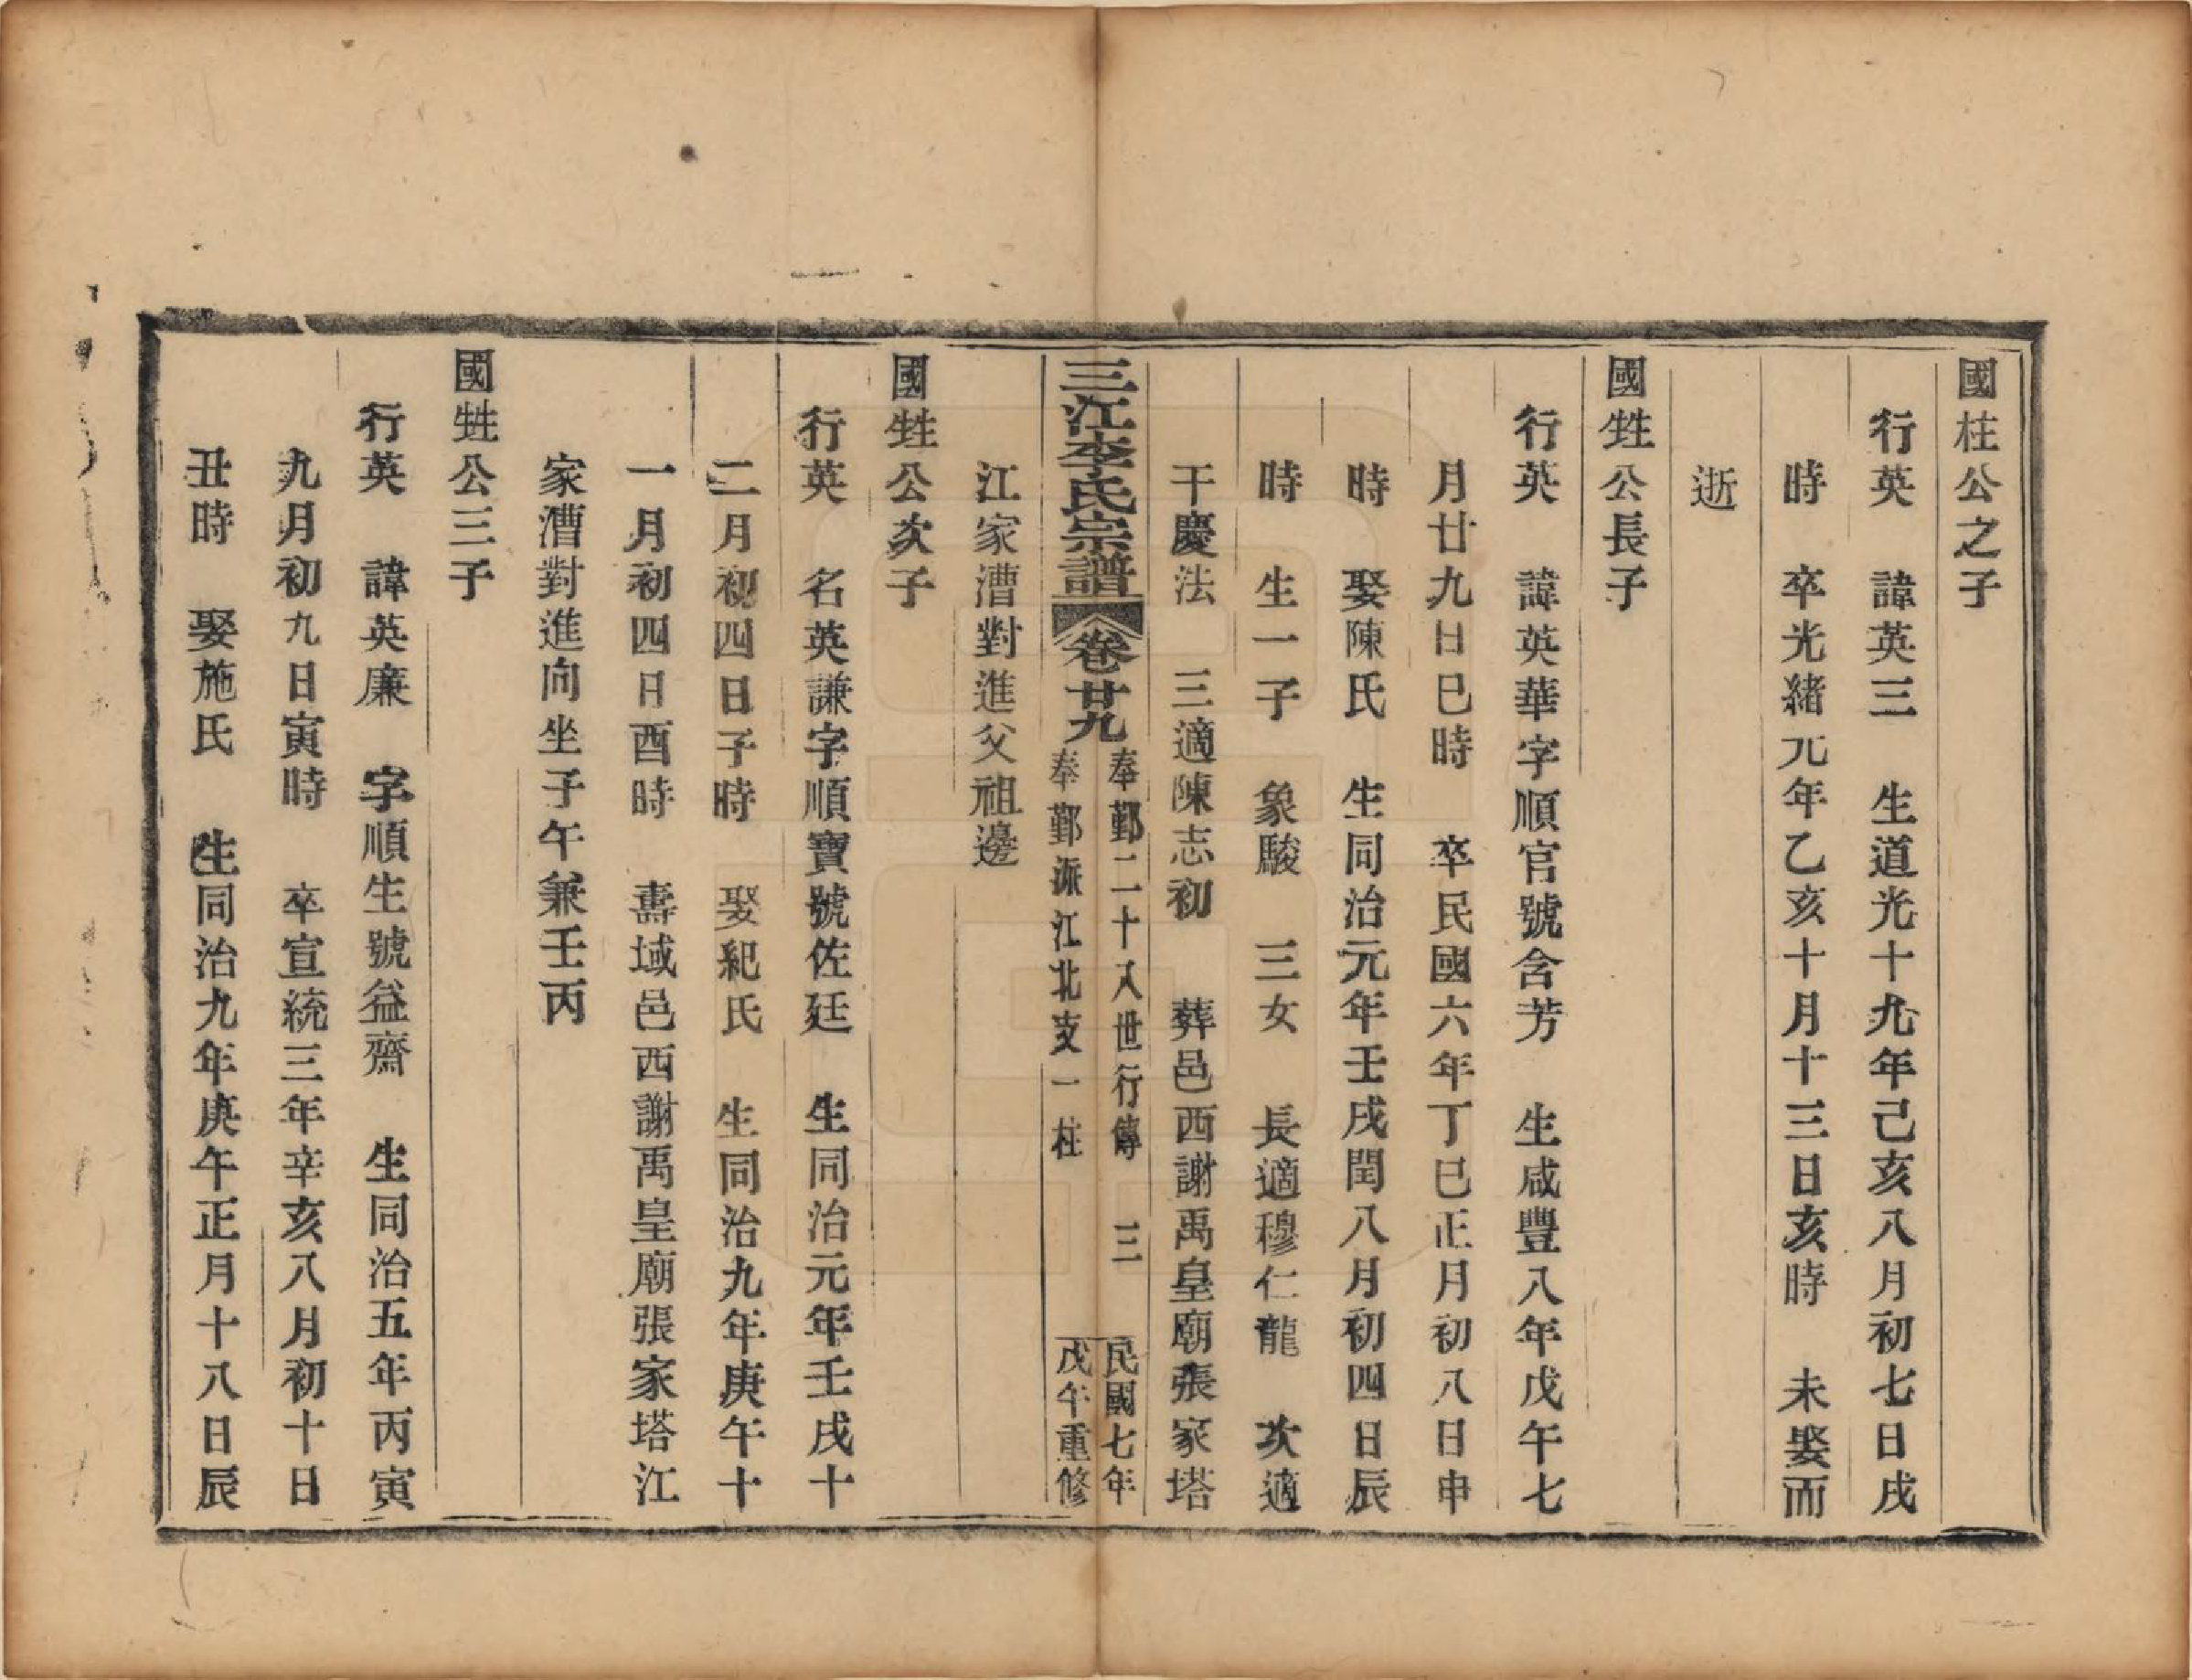 國柱公之子
行英　諱英三　生道光十九年己亥八月初七日戌
時　卒光緒元年乙亥十月十三日亥時　未娶而
逝
國甡公長子
行英　諱英華字順官號含芳　生咸豐八年戊午七
月廿九日巳時　卒民國六年丁巳正月初八日申
時　娶陳氏　生同治元年壬戌閏八月初四日辰
時　生一子　象駿　三女　長適穆仁龍　次適
干慶法　三適陳志初　葬邑西謝禹皇廟張家塔
三江李氏宗譜　卷廿九
奉鄞二十八世行傳　三
奉鄞派江北支一柱
民國七年
戊午重修
江家漕對進父祖邊
國甡公次子
行英　名英謙字順寶號佐廷　生同治元年壬戌十
二月初四日子時　娶紀氏　生同治九年庚午十
一月初四日酉時　壽域邑西謝禹皇廟張家塔江
家漕對進向坐子午兼壬丙
國甡公三子
行英　諱英廉　字順生號益齋　生同治五年丙寅
九月初九日寅時　卒宣統三年辛亥八月初十日
丑時　娶施氏　生同治九年庚午正月十八日辰